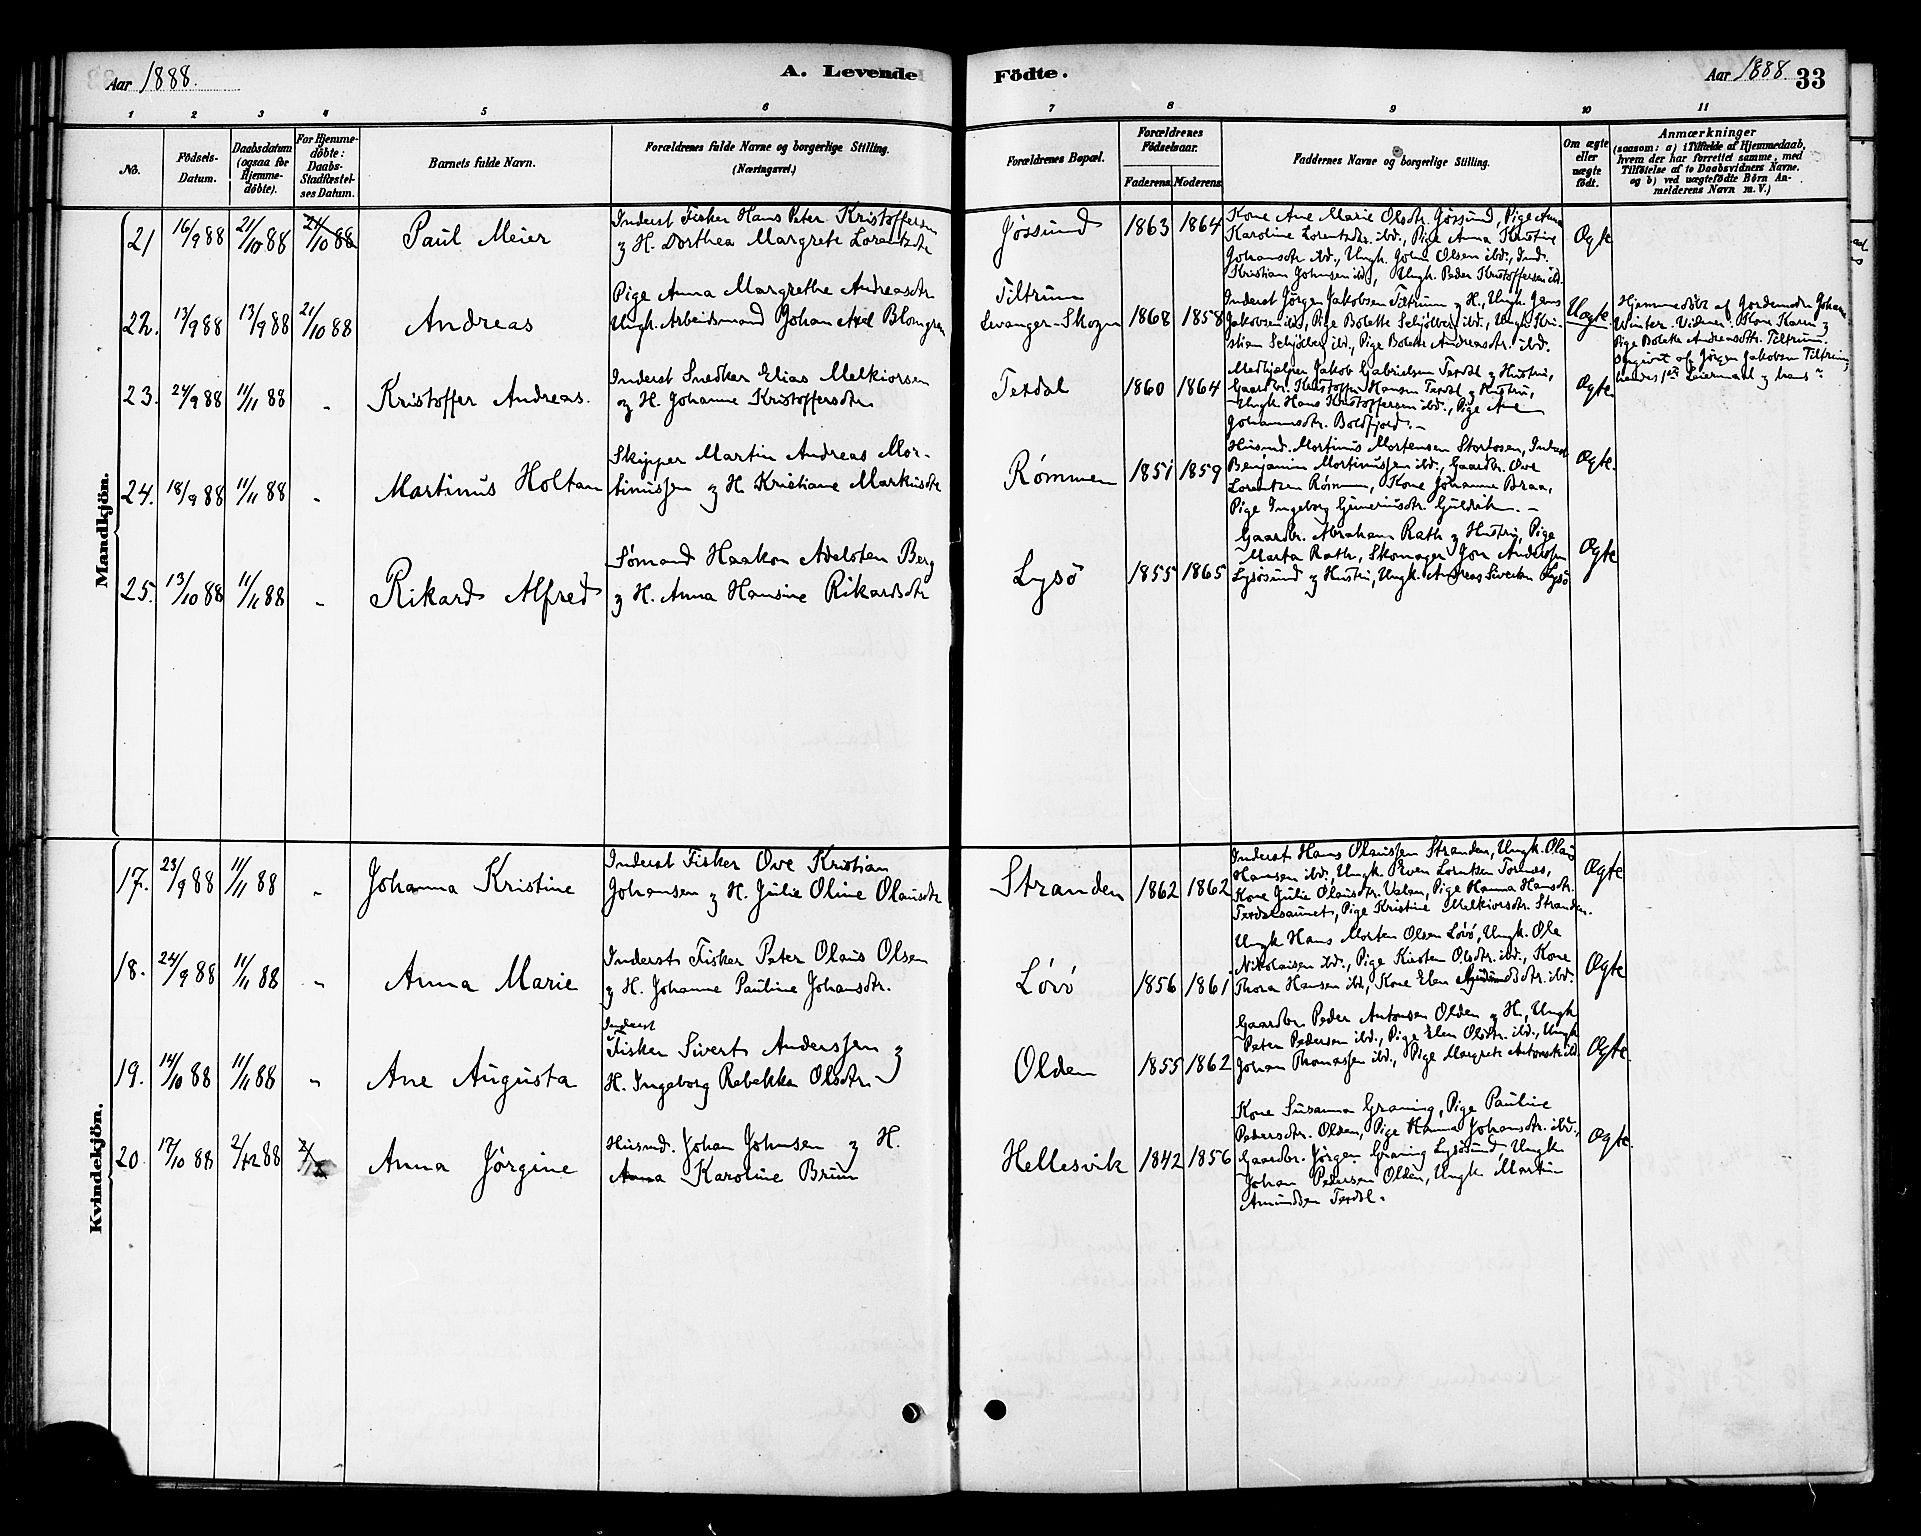 Aar 1888.
A. Levende Födte.
Aar 1888. 33
1 2 3 4 5 6 7 8 9 10 11
No.
Födsels-Datum.
Daabsdatum (ogsaa for Hjemme-döbte).
For Hjemme-döbte: Daabs-Stadfæstel-ses Datum.
Barnets fulde Navn.
Forældrenes fulde Navne og borgerlige Stilling. (Næringsvei.)
Forældrenes Bopæl.
Forældrenes Födselsaar.
Faderens. Moderens.
Faddernes Navne og borgerlige Stilling.
Om ægte eller uægte födt.
Anmærkninger
(saasom: a) i Tilfælde af Hjemmedaab,
hvem der har forrettet samme, med
Tilföielse af to Daabsvidners Navne.
og b) ved uægtefödte Börn An-
melderens Navn m. V.)
Mandkjön.
21 16/9 88 21/10 88 21/10 88 Paul Meier
Inderst Fisker Hans Peter Kristoffersen
& H. Dorthea Margrete Lorentsdtr
Jøssund 1863 1864
Kone Ane Marie Olsdtr. Jøssund, Pige Anna
Karoline Lorentsdtr. ibd., Pige Anna Kristine
Johansdtr ibd., Ungk. John Olsen ibd., Ind.
Kristian Johnsen ibd., Ungk. Peder Kristoffersen ibd.
Ægte
22. 13/9 88 13/9 88 21/10 88 Andreas
Pige Anna Margrethe Andreasdtr
Ungk. Arbeidsmand Johan Axel Blomgren
Tiltrum
Levanger-Skogn 1868 1858
Inderst Jörgen Jakobsen Tiltrum & H., Ungk. Jens
Jakobsen ibd., Pige Bolette Schjölberg ibd., Ungk. Kri-
stian Schjölberg ibd., Pige Bolette Andreasdtr. ibd.
Uægte.
Hjemmedöbt af Jordemoder Johanna
Winter. Vidner: Kone Karen &
Pige Bolette Andreasdtr. Tiltrum.
Opgivet af Jörgen Jakobsen Tiltrum;
hendes 1ste Leiermaal & hans "
23. 24/9 88 11/11 88 " Kristoffer Andreas.
Inderst Snedker Elias Melkiorsen
og H. Johanne Kristoffersdtr
Terdal 1860 1864
Medhjelper Jakob Gabrielsen Terdal & Hustru,
Gaardbr. Kristoffer Hansen Terdal & Hustru,
Ungk. Hans Kristoffersen ibd., Pige Ane
Johannesdtr. Boldfjord. -
Ægte.
24. 18/9 88 11/11 88 " Martinus Holtan
Skipper Martin Andreas Mor-
tinussen & H Kristiane Markusdtr
Rømmen 1851 1859
Husmd. Mortinus Mortensen Stordosen, Inderst
Benjamin Mortinussen ibd., Gaardbr. Ove
Lorentsen Rømmen, Kone Johanne Braa,
Pige Ingeborg Guneriusdtr. Guldvik. -
Ægte.
25. 13/10 88 11/11 88 " Rikard Alfred
Sømand Haakon Adelsten Berg
& H. Anna Hansine Rikardsdtr
Lysö 1855 1865
Gaardbr. Abraham Rath & Hustru, Pige
Marta Rath, Skomager Jon Andersen
Lysösund & Hustru, Ungk. Andreas Sivertsen Lysö
Ægte
Kvindekjön.
17. 23/9 88 11/11 88 " Johanna Kristine
Inderst Fisker Ove Kristian
Johansen & H. Julie Oline Olausdtr
Stranden 1862 1862
Inderst Hans Olaussen Stranden, Ungk. Olaus
Hansen ibd., Ungk. Even Lorentsen Tornes,
Kone Julie Olausdtr. Valen, Pige Hanna Hansdtr.
Terdalsaunet, Pige Kristine Melkiorsdtr. Stranden.
Ægte
18. 24/9 88 11/11 88 " Anna Marie
Inderst Fisker Peter Olaus Olsen
& H. Johanne Pauline Johansdtr.
Lörö 1856 1861
Ungk Hans Morten Olsen Lörö, Ungk. Ole
Nikolaisen ibd., Pige Kirsten Olsdtr. ibd., Kone
Thora Hansen ibd., Kone Elen Amundsdtr. ibd.
Ægte
19. 14/10 88 11/11 88 " Ane Augusta
Inderst
Fisker Sivert Anderssen &
H. Ingeborg Rebekka Olsdtr.
Olden 1855 1862
Gaardbr Peder Antonsen Olden & H., Ungk
Peter Pedersen ibd., Pige Elen Olsdtr. ibd., Ungk
Johan Thomassen ibd., Pige Margrete Antonsdtr. ibd.
Ægte.
20. 17/10 88 2/12 88 2/12 Anna Jörgine
Husmd. Johan Johnsen & H.
Anna Karoline Bruun
Hellesvik 1842 1856
Kone Susanna Graning, Pige Pauline
Pedersdtr. Olden, Pige Hanna Johansdtr. ibd.,
Gaardbr. Jörgen Graning Lysösund, Ungk
Johan Pedersen Olden, Ungk. Martin
Amundsen Terdal.
Ægte